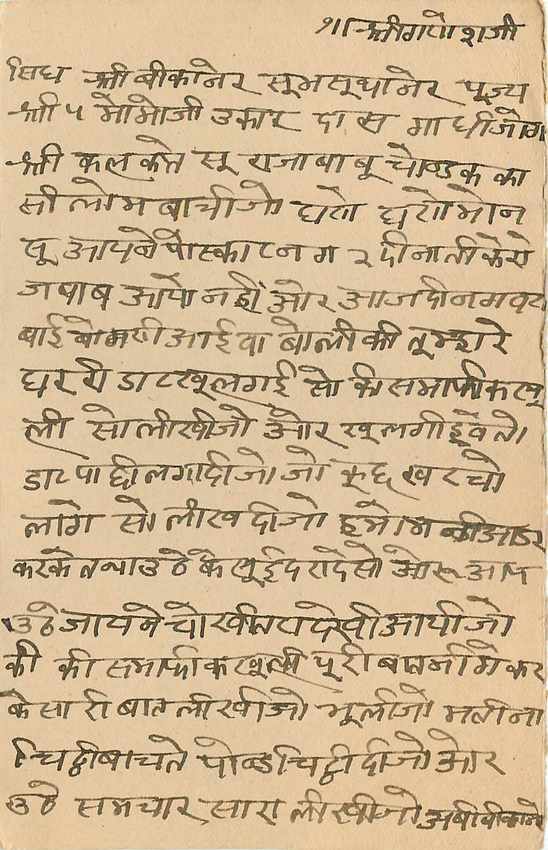 १॥ श्री गणेशजी
सिध श्री बीकानेर सूभसूथानेर पूज्य
श्री ५ मामाजी उंकार दास गाधीजोग
श्री कलकते सू राजा बाबू चाण्डक का
सीलाम बाचीजो घणे घणे मान
सू आपने पोस्काट न ग २ दीना तीकेरो
जबाब आयो नहीं ओर आज दीन
बाई बामणी आई वा बोली की तूम्हारे
घर री डाट खूलगई सो की समाफीक खू
ली सो लीखीजो ओर खूलगी हूवे तो
डाट पाछी लगादीजो जो कूछ खरचो
लागे सो लीख दीजो हमे म नीआडर
करके तथा उठे के खूई दरादेसो ओरू आप
उठे जायने चोखीतरा देखी आयीजो
की की समाफीक खूली पूरी बात जीमे कर
के सारी बात लीखीजो भूलीजो मती ना
चिट्ठी बाचते पाण्ड चिट्ठी दीजो ओर
उठे समचार सारा लीखीजो